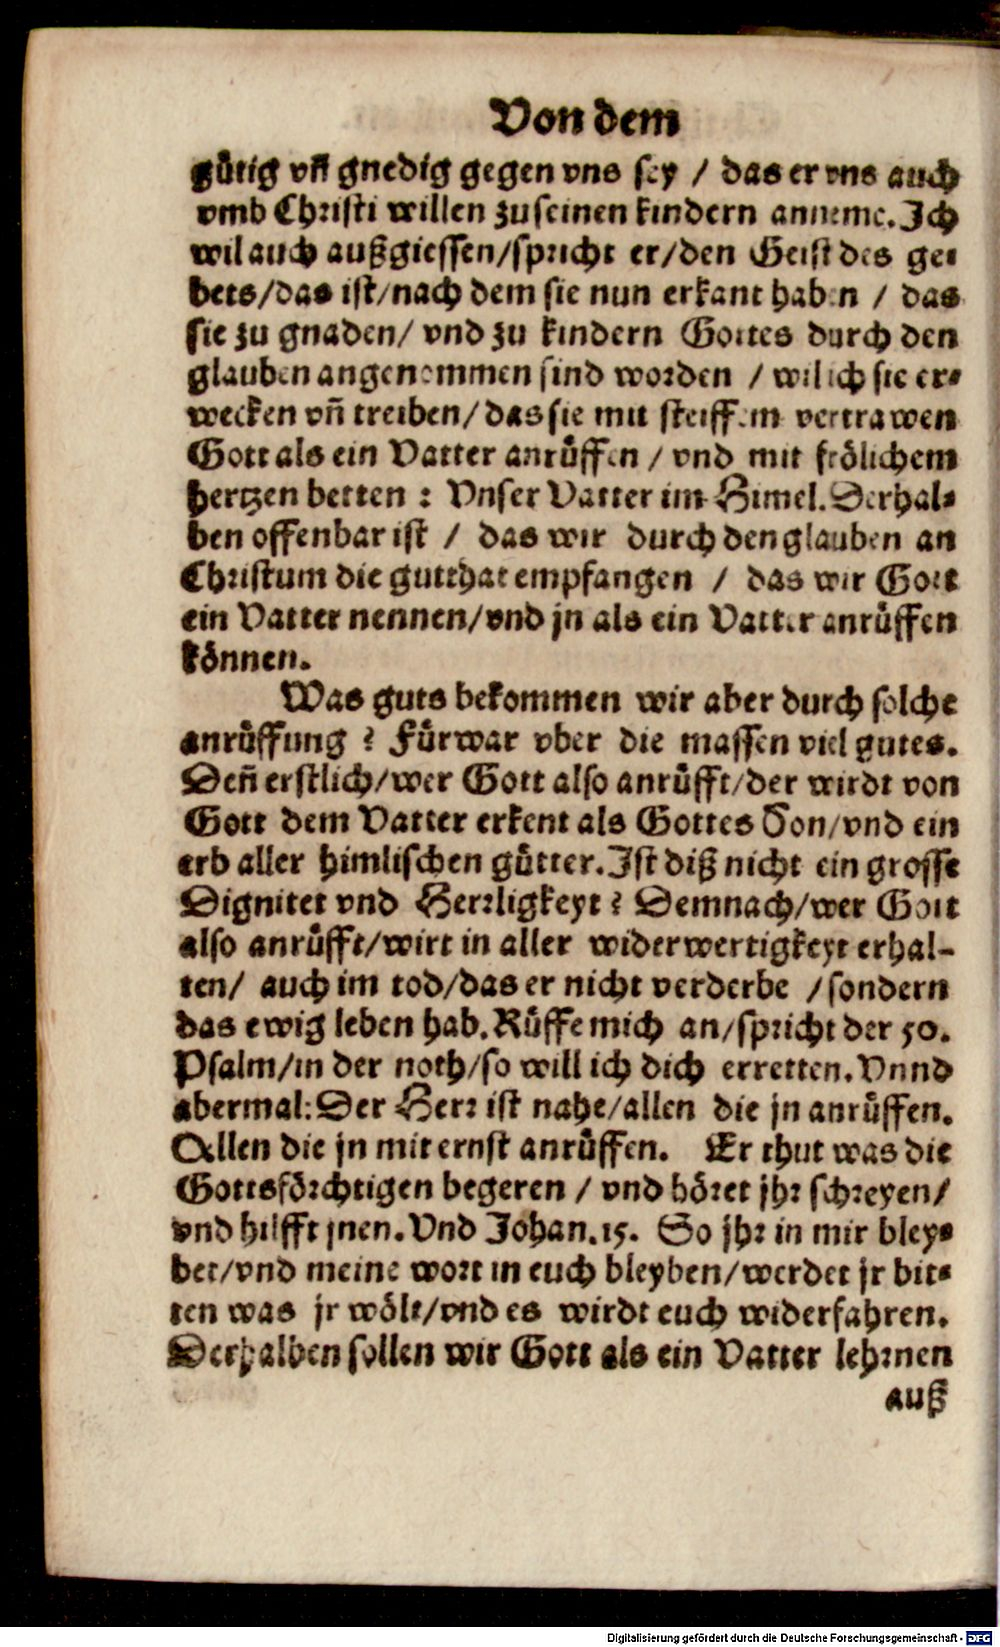 Von dem
gütig vñ gnedig gegen vns sey / das er vns auch
vmb Christi willen zu seinen kindern anneme. Ich
wil auch außgiessen/spricht er/den Geist des ge-
bets/das ist/nach dem sie nun erkant haben / das
sie zu gnaden/ vnd zu kindern Gottes durch den
glauben angenommen sind worden / wil ich sie er-
wecken vñ treiben/das sie mit steiffem vertrawen
Gott als ein Vatter anrüffen / vnd mit frölichem
hertzen betten : Vnser Vatter im Himel. Derhal-
ben offenbar ist / das wir durch den glauben an
Christum die gutthat empfangen / das wir Gott
ein Vatter nennen/vnd jn als ein Vatter anrüffen
können.
Was guts bekommen wir aber durch solche
anrüffung ? Fürwar vber die massen viel gutes.
Deñ erstlich/wer Gott also anrüfft/der wirdt von
Gott dem Vatter erkent als Gottes Son/vnd ein
erb aller himlischen gütter. Ist diß nicht ein grosse
Dignitet vnd Herrligkeyt ? Demnach/wer Gott
also anrüfft/wirt in aller widerwertigkeyt erhal-
ten/ auch im tod/das er nicht verderbe /sondern
das ewig leben hab. Rüffe mich an/spricht der 50.
Psalm/in der noth/so will ich dich erretten. Vnnd
abermal: Der Herr ist nahe/allen die jn anrüffen.
Allen die jn mit ernst anrüffen. Er thut was die
Gottsförchtigen begeren / vnd höret jhr schreyen/
vnd hilfft jnen. Vnd Johan. 15. So jhr in mir bley-
bet/vnd meine wort in euch bleyben/werdet jr bit-
ten was jr wölt/vnd es wirdt euch widerfahren.
Derhalben sollen wir Gott als ein Vatter lehrnen
auß
Digitalisierung gefördert durch die Deutsche Forschungsgemeinschaft - DFG